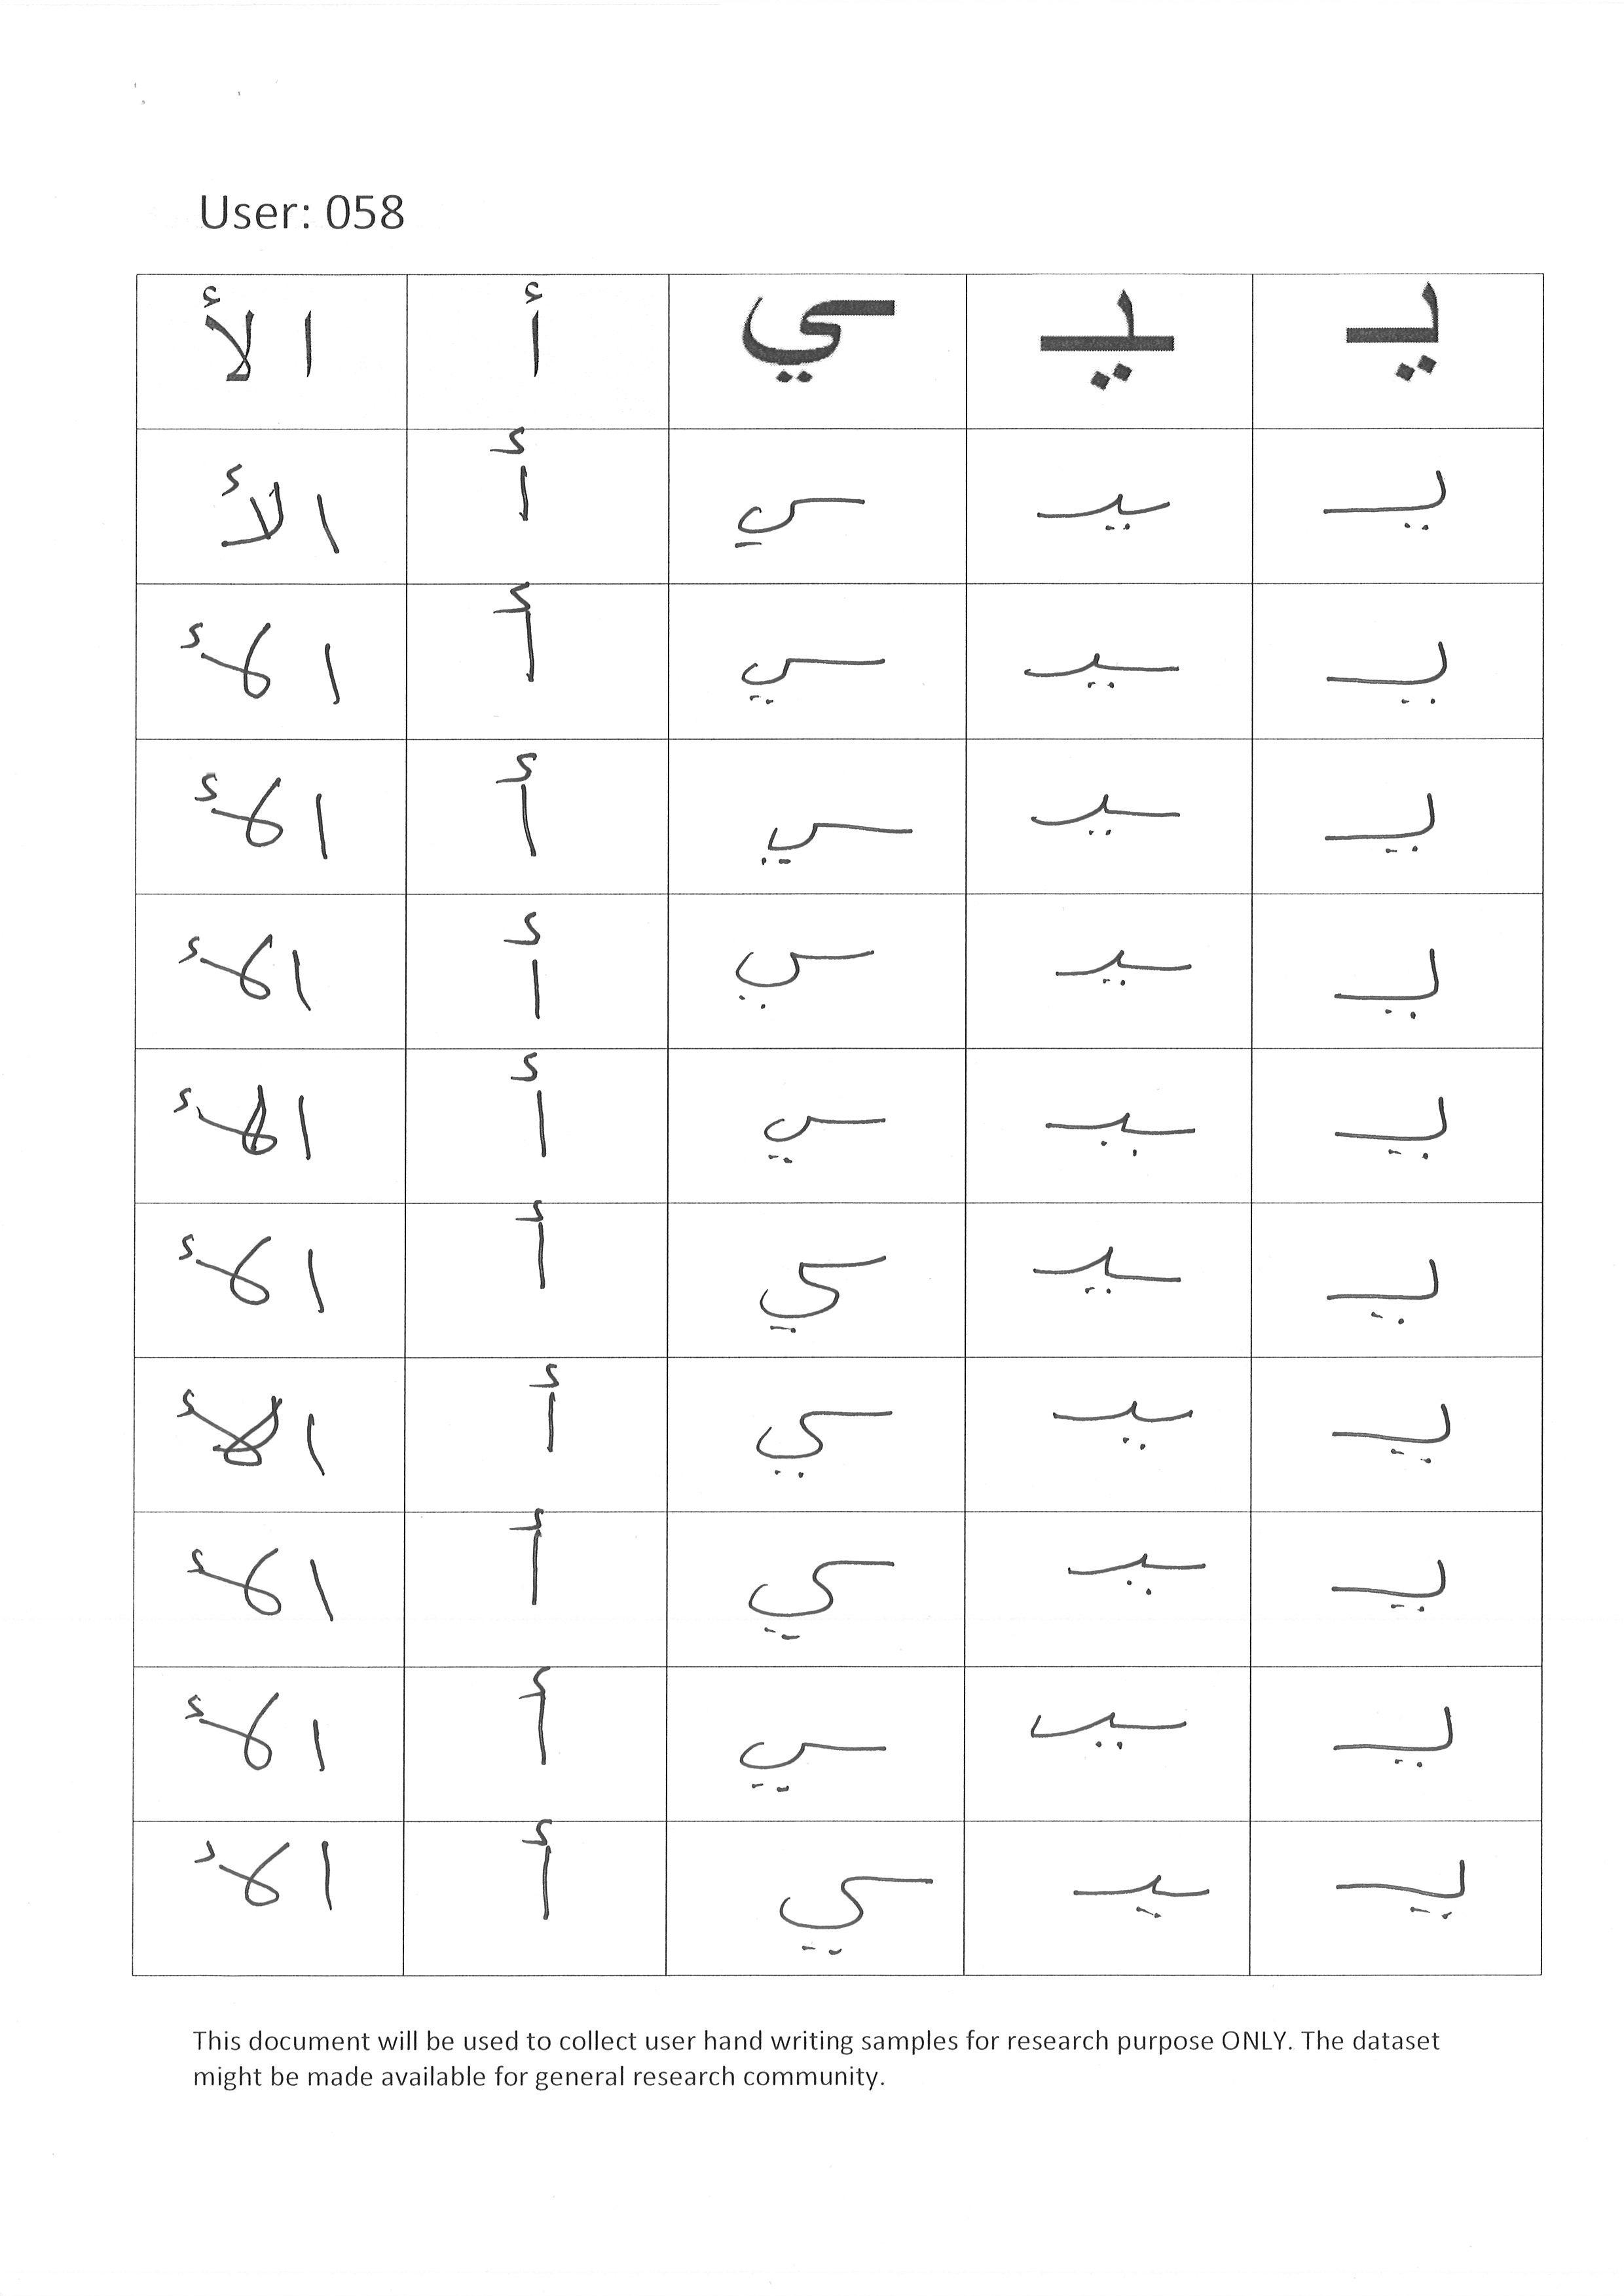 User: 058
يـ ـيـ ـي أ ا لأ
يـ ـيـ ـي أ ا لأ
يـ ـيـ ـي أ ا لأ
يـ ـيـ ـي أ ا لأ
يـ ـيـ ـي أ ا لأ
يـ ـيـ ـي أ ا لأ
يـ ـيـ ـي أ ا لأ
يـ ـيـ ـي أ ا لأ
يـ ـيـ ـي أ ا لأ
يـ ـيـ ـي أ ا لأ
يـ ـيـ ـي أ ا لأ
This document will be used to collect user hand writing samples for research purpose ONLY. The dataset
might be made available for general research community.